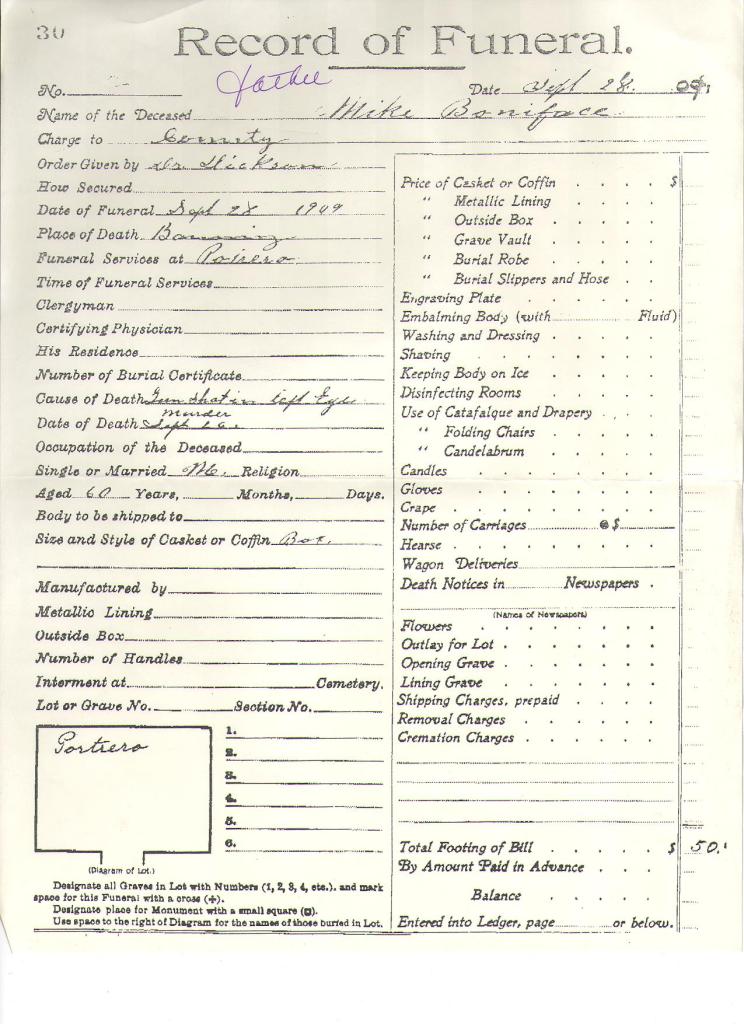 30
Record of Funeral.
father
No. Date Sept 28. 09
Name of the Deceased Mike Boniface
Charge to County
Order Given by Dr. Dickson
How Secured
Date of Funeral Sept 28 1909
Place of Death Banning
Funeral Services at Potrero
Time of Funeral Services
Clergyman
Certifying Physician
His Residence
Number of Burial Certificate
Cause of Death Gun Shot in left Eye
murder
Date of Death Sept
Occupation of the Deceased
Single or Married M. Religion
Aged 60 Years, Months, Days.
Body to be shipped to
Size and Style of Casket or Coffin Box.
Manufactured by
Metallic Lining
Outside Box
Number of Handles
Interment at Cemetery.
Lot or Grave No. Section No.
Portrero
1.
2.
3.
4.
5.
6.
(Diagram of Lot.)
Designate all Graves in Lot with Numbers (1, 2, 3, 4, etc.). and mark
space for this Funeral with a cross (+).
Designate place for Monument with a small square (□).
Use space to the right of Diagram for the names of those buried in Lot.
Price of Casket or Coffin . . . . $
" Metallic Lining . . . . .
" Outside Box . . . . .
" Grave Vault . . . . .
" Burial Robe . . . . .
" Burial Slippers and Hose . .
Engraving Plate . . . . . .
Embalming Body (with Fluid)
Washing and Dressing . . . . .
Shaving . . . . . . .
Keeping Body on Ice . . . . .
Disinfecting Rooms . . . . .
Use of Catafalque and Drapery . . .
" Folding Chairs . . . . .
" Candelabrum . . . . .
Candles . . . . . . .
Gloves . . . . . . .
Crape . . . . . . .
Number of Carriages @ $
Hearse . . . . . . . .
Wagon Deliveries
Death Notices in Newspapers .
(Names of Newspapers)
Flowers . . . . . . .
Outlay for Lot . . . . . .
Opening Grave . . . . . .
Lining Grave . . . . . .
Shipping Charges, prepaid . . . .
Removal Charges . . . . .
Cremation Charges . . . . .
Total Footing of Bill . . . . . $ 50.
By Amount Paid in Advance . . .
Balance . . . . .
Entered into Ledger, page or below.